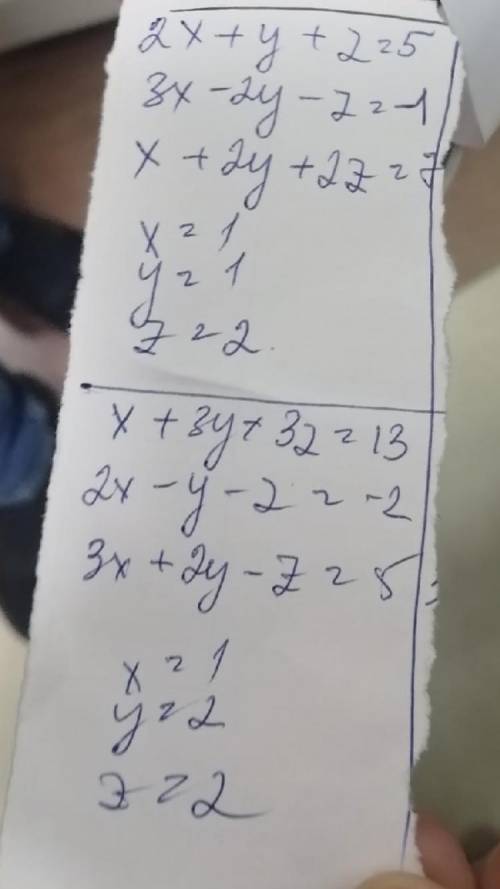 2x + y + z = 5
3x - 2y - z = -1
x + 2y + 2z = 7
x = 1
y = 1
z = 2.
x + 3y + 3z = 13
2x - y - z = -2
3x + 2y - z = 5
x = 1
y = 2
z = 2